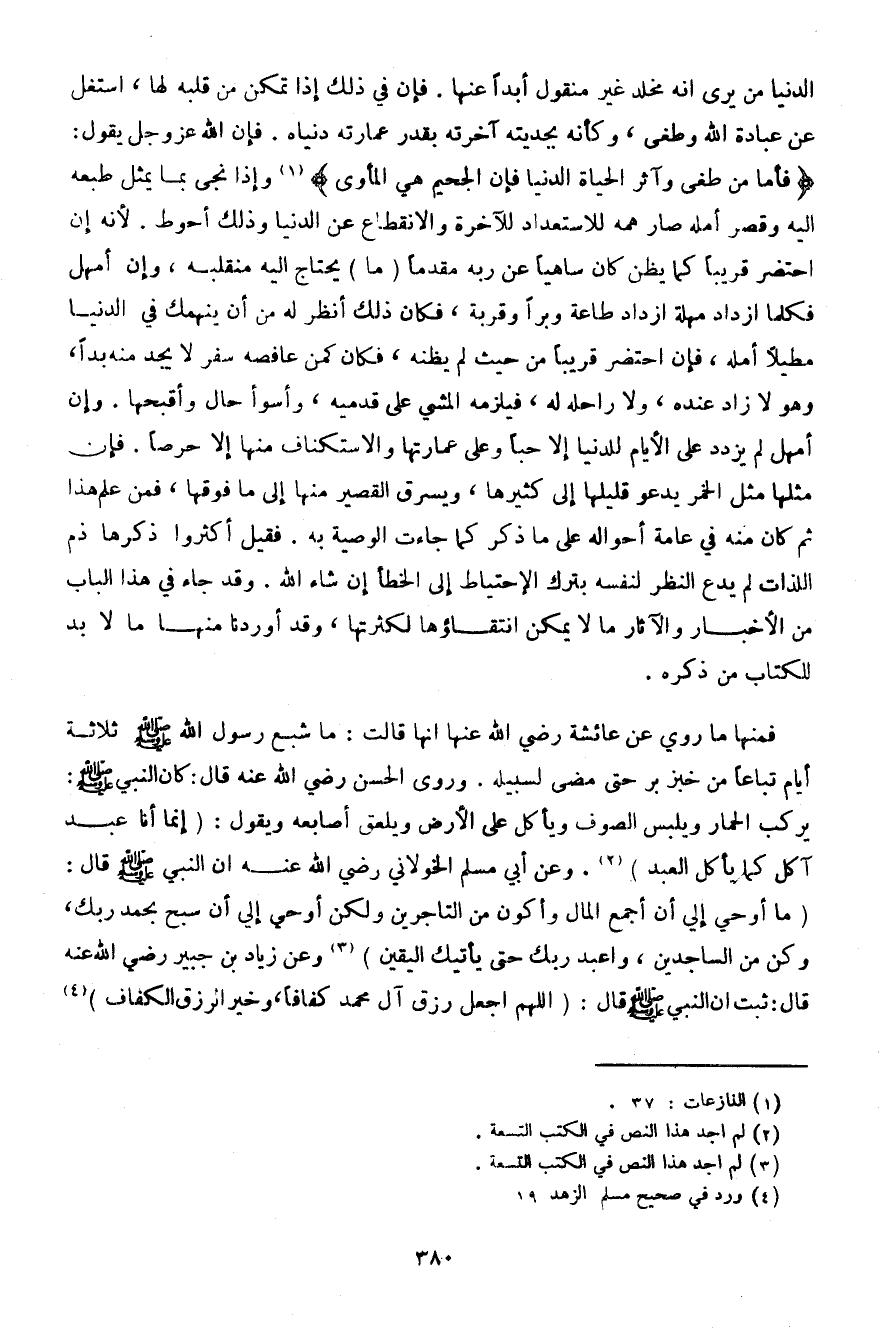 الدنيا من يرى انه مخلد غير منقول أبداً عنها . فإن في ذلك إذا تمكن من قلبه لها ، استغل
عن عبادة الله وطغى ، وكأنه يجديته آخرته بقدر عمارته دنياه . فإن الله عزوجل يقول:
﴿ فأما من طغى وآثر الحياة الدنيا فإن الجحيم هي المأوى ﴾ (١) وإذا نجى بما يمثل طبعه
اليه وقصر أمله صار همه للاستعداد للآخرة والانقطاع عن الدنيا وذلك أحوط . لأنه إن
احتضر قريباً كما يظن كان ساهياً عن ربه مقدماً ( ما ) يحتاج اليه منقلبه ، وإن أمهل
فكلما ازداد مهلة ازداد طاعة وبراً وقربة ، فكان ذلك أنظر له من أن ينهمك في الدنيا
مطيلاً أمله ، فإن احتضر قريباً من حيث لم يظنه ، فكان كمن عافصه سفر لا يجد منه بداً،
وهو لا زاد عنده ، ولا راحله له ، فيلزمه المشي على قدميه ، وأسوأ حال وأقبحها . وإن
أمهل لم يزدد على الأيام للدنيا إلا حباً وعلى عمارتها والاستكناف منها إلا حرصاً . فإن
مثلها مثل الخمر يدعو قليلها إلى كثيرها ، ويسرق القصير منها إلى ما فوقها ، فمن علم هذا
ثم كان منه في عامة أحواله على ما ذكر كما جاءت الوصية به . فقيل أكثروا ذكرها ذم
اللذات لم يدع النظر لنفسه بترك الإحتياط إلى الخطأ إن شاء الله . وقد جاء في هذا الباب
من الأخبار والآثار ما لا يمكن انتقاؤها لكثرتها ، وقد أوردنا منها ما لا بد
للكتاب من ذكره .
فمنها ما روي عن عائشة رضي الله عنها انها قالت : ما شبع رسول الله ﷺ ثلاثة
أيام تباعاً من خبز بر حتى مضى لسبيله . وروى الحسن رضي الله عنه قال : كان النبي ﷺ :
يركب الحمار ويلبس الصوف ويأكل على الأرض ويلعق أصابعه ويقول : ( إنما أنا عبد
آكل كما يأكل العبد ) (٢) . وعن أبي مسلم الخولاني رضي الله عنه ان النبي ﷺ قال :
( ما أوحي إلي أن أجمع المال وأكون من التاجرين ولكن أوحي إلي أن سبح بحمد ربك،
وكن من الساجدين ، واعبد ربك حتى يأتيك اليقين ) (٣) وعن زياد بن جبير رضي الله عنه
قال : ثبت ان النبي ﷺ قال : ( اللهم اجعل رزق آل محمد كفافاً، وخير الرزق الكفاف )(٤)
(١) النازعات : ٣٧ .
(٢) لم اجد هذا النص في الكتب التسعة .
(٣) لم اجد هذا النص في الكتب التسعة .
(٤) ورد في صحيح مسلم الزهد ١٩
٣٨٠